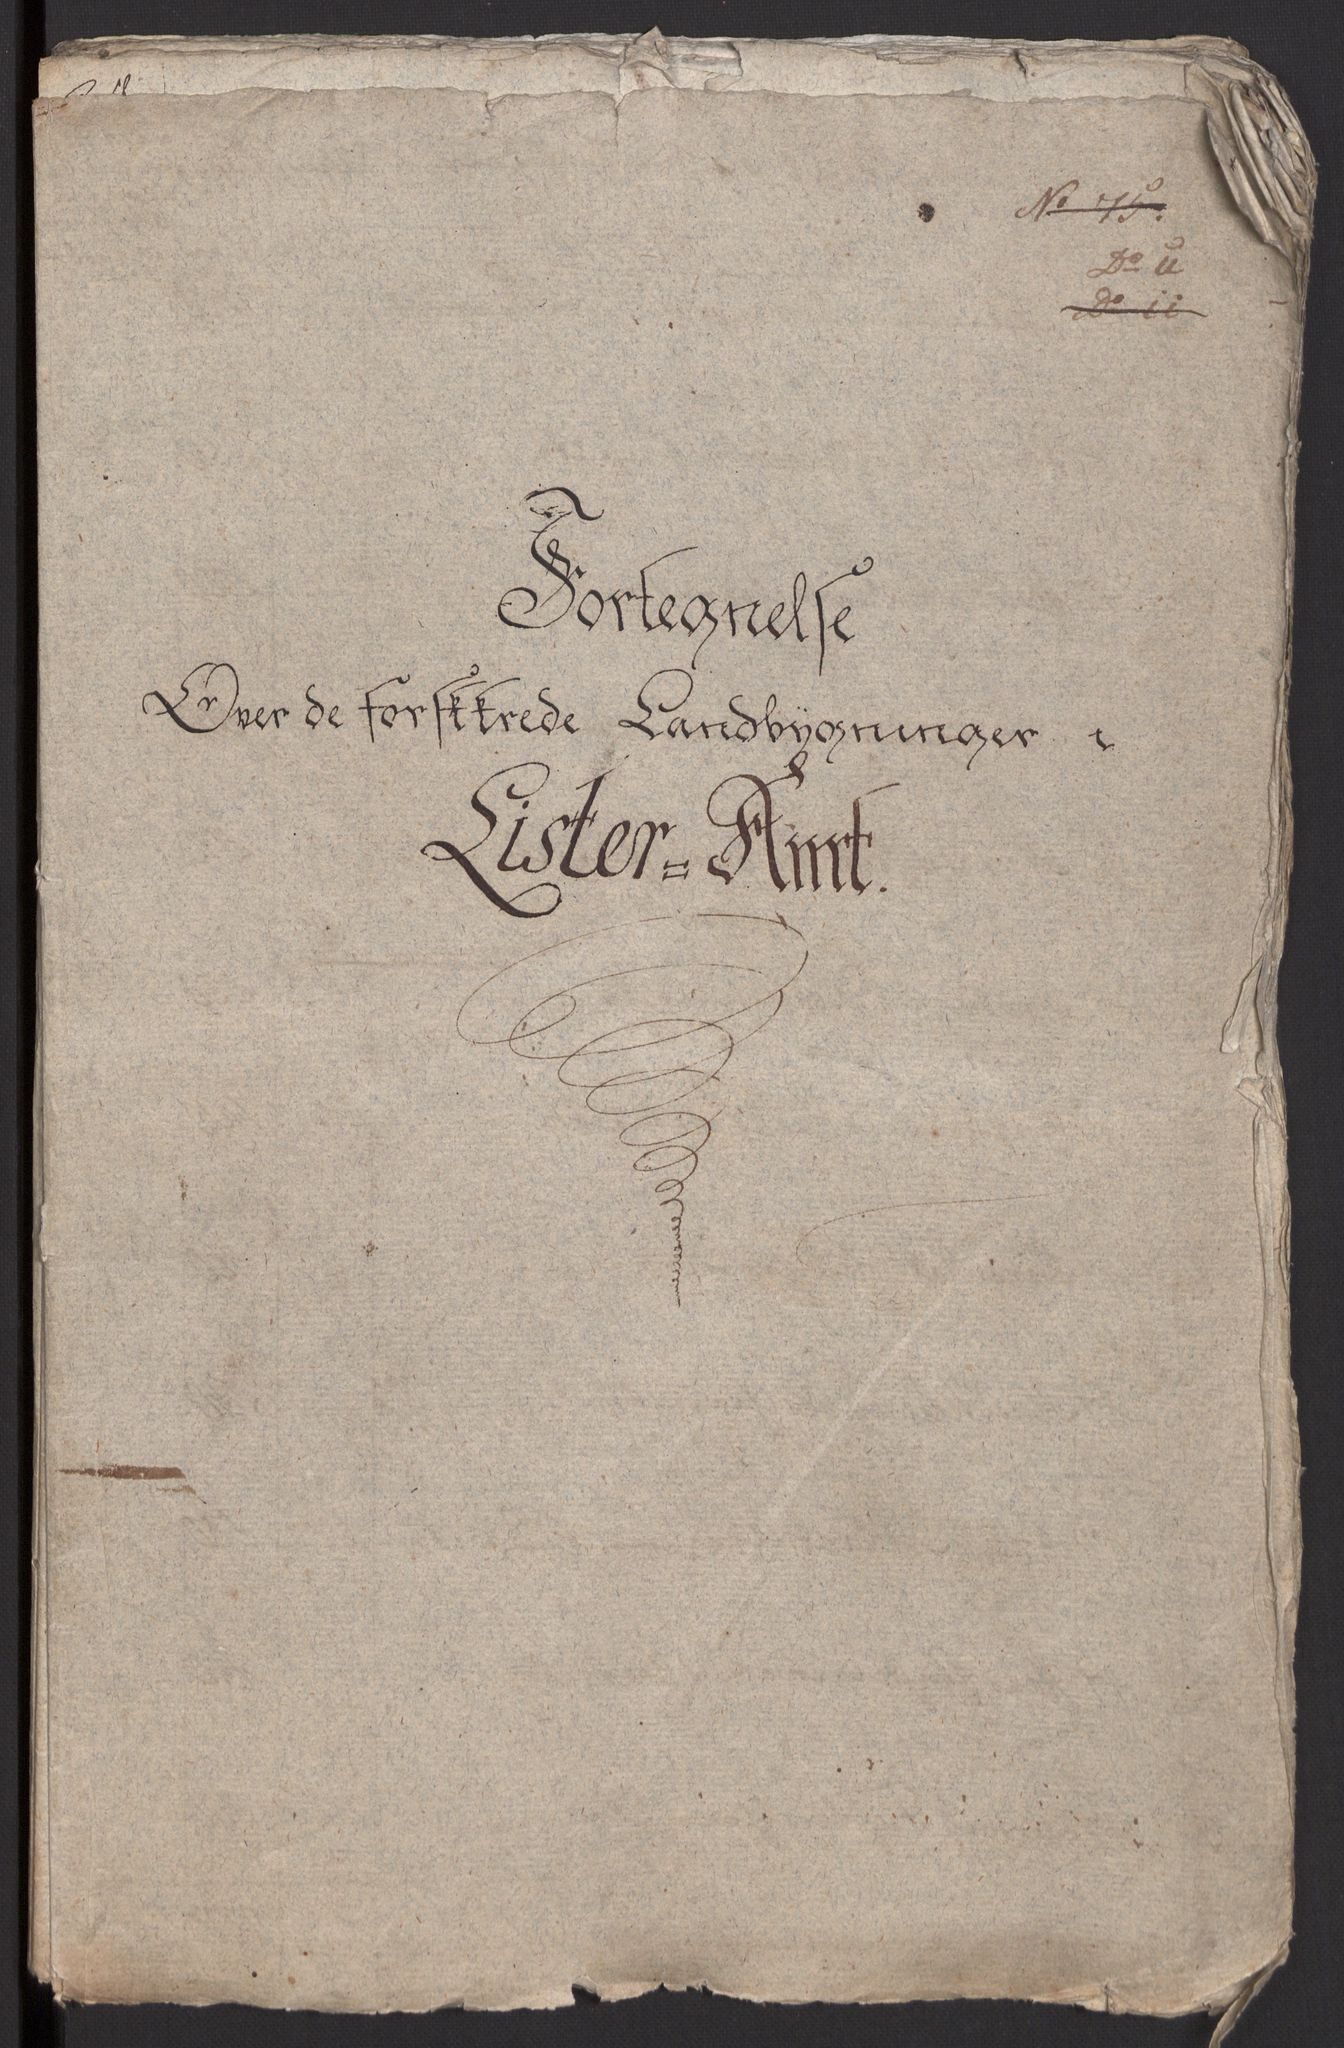 No 75.
Do 11
Do 11
Fortegnelse
Over de forsikkrede Landbygninger i
Lister = Amt.